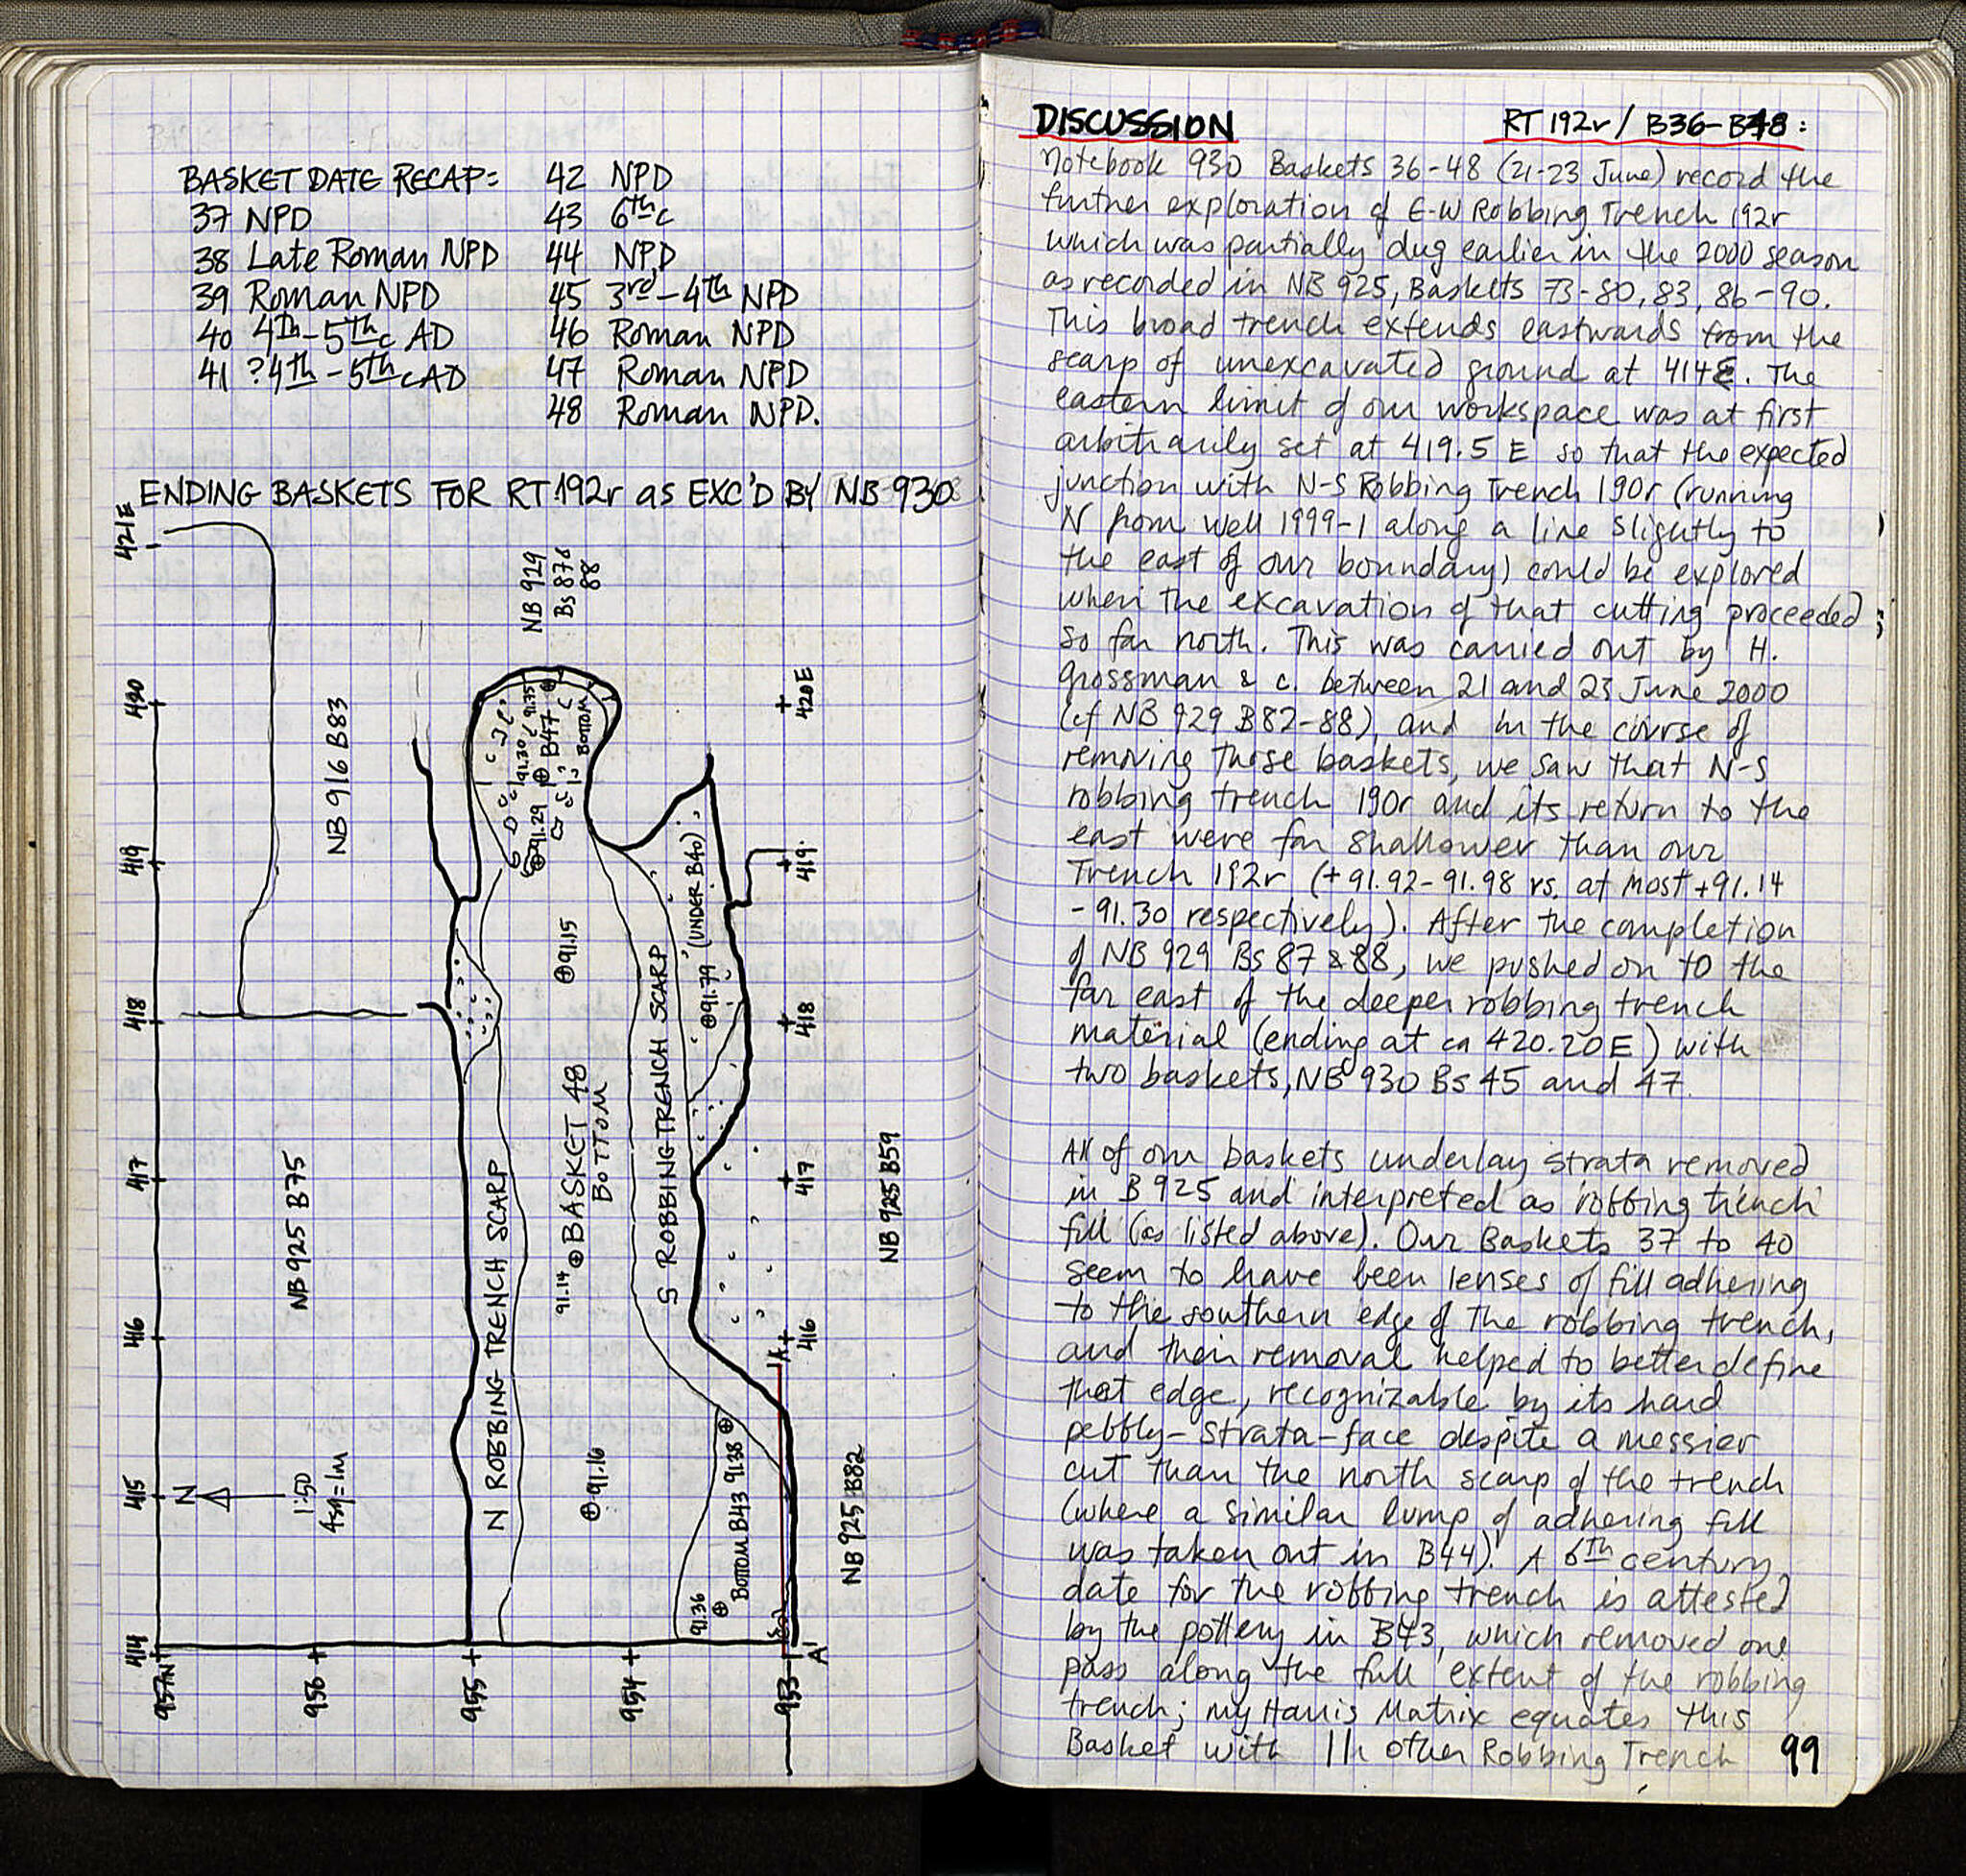 BASKET DATE RECAP:
37 NPD
38 Late Roman NPD
39 Roman NPD
40 4th-5th c AD
41 ?4th-5th c AD
42 NPD
43 6th c
44 NPD
45 3rd-4th NPD
46 Roman NPD
47 Roman NPD
48 Roman NPD.
ENDING BASKETS FOR RT 192r as EXC'D BY NB 930
421E
420
419
418
417
416
415
414
957N
956
955
954
953
A'
NB 929
Bs 87&
88
NB 916 B83
NB 925 B75
N
1:50
4sq=1m
N ROBBING TRENCH SCARP
91.75
91.30
B47
BOTTOM
91.29
91.15
BASKET 48
BOTTOM
91.14
91.16
S ROBBING TRENCH SCARP
(UNDER B40)
91.79
BOTTOM B43 91.38
91.36
420E
419
418
417
416
A
NB 925 B59
NB 925 B82
DISCUSSION RT 192r / B36-B48:
Notebook 930 Baskets 36-48 (21-23 June) record the
further exploration of E-W Robbing Trench 192r
which was partially dug earlier in the 2000 season
as recorded in NB 925, Baskets 73-80, 83, 86-90.
This broad trench extends eastwards from the
scarp of unexcavated ground at 414E. The
eastern limit of our workspace was at first
arbitrarily set at 419.5 E so that the expected
junction with N-S Robbing Trench 190r (running
N from well 1999-1 along a line slightly to
the east of our boundary) could be explored
when the excavation of that cutting proceeded
so far north. This was carried out by H.
Grossman & c. between 21 and 23 June 2000
(cf NB 929 B82-88), and in the course of
removing those baskets, we saw that N-S
robbing trench 190r and its return to the
east were far shallower than our
Trench 192r (+91.92-91.98 vs. at most +91.14
-91.30 respectively). After the completion
of NB 929 Bs 87 & 88, we pushed on to the
far east of the deeper robbing trench
material (ending at ca 420.20E) with
two baskets, NB 930 Bs 45 and 47.
All of our baskets underlay strata removed
in B 925 and interpreted as robbing trench
fill (as listed above). Our Baskets 37 to 40
seem to have been lenses of fill adhering
to the southern edge of the robbing trench,
and their removal helped to better define
that edge, recognizable by its hard
pebbly-strata-face despite a messier
cut than the north scarp of the trench
(where a similar lump of adhering fill
was taken out in B44). A 6th century
date for the robbing trench is attested
by the pottery in B43, which removed one
pass along the full extent of the robbing
trench; my Harris Matrix equates this
Basket with 11 other Robbing Trench
99